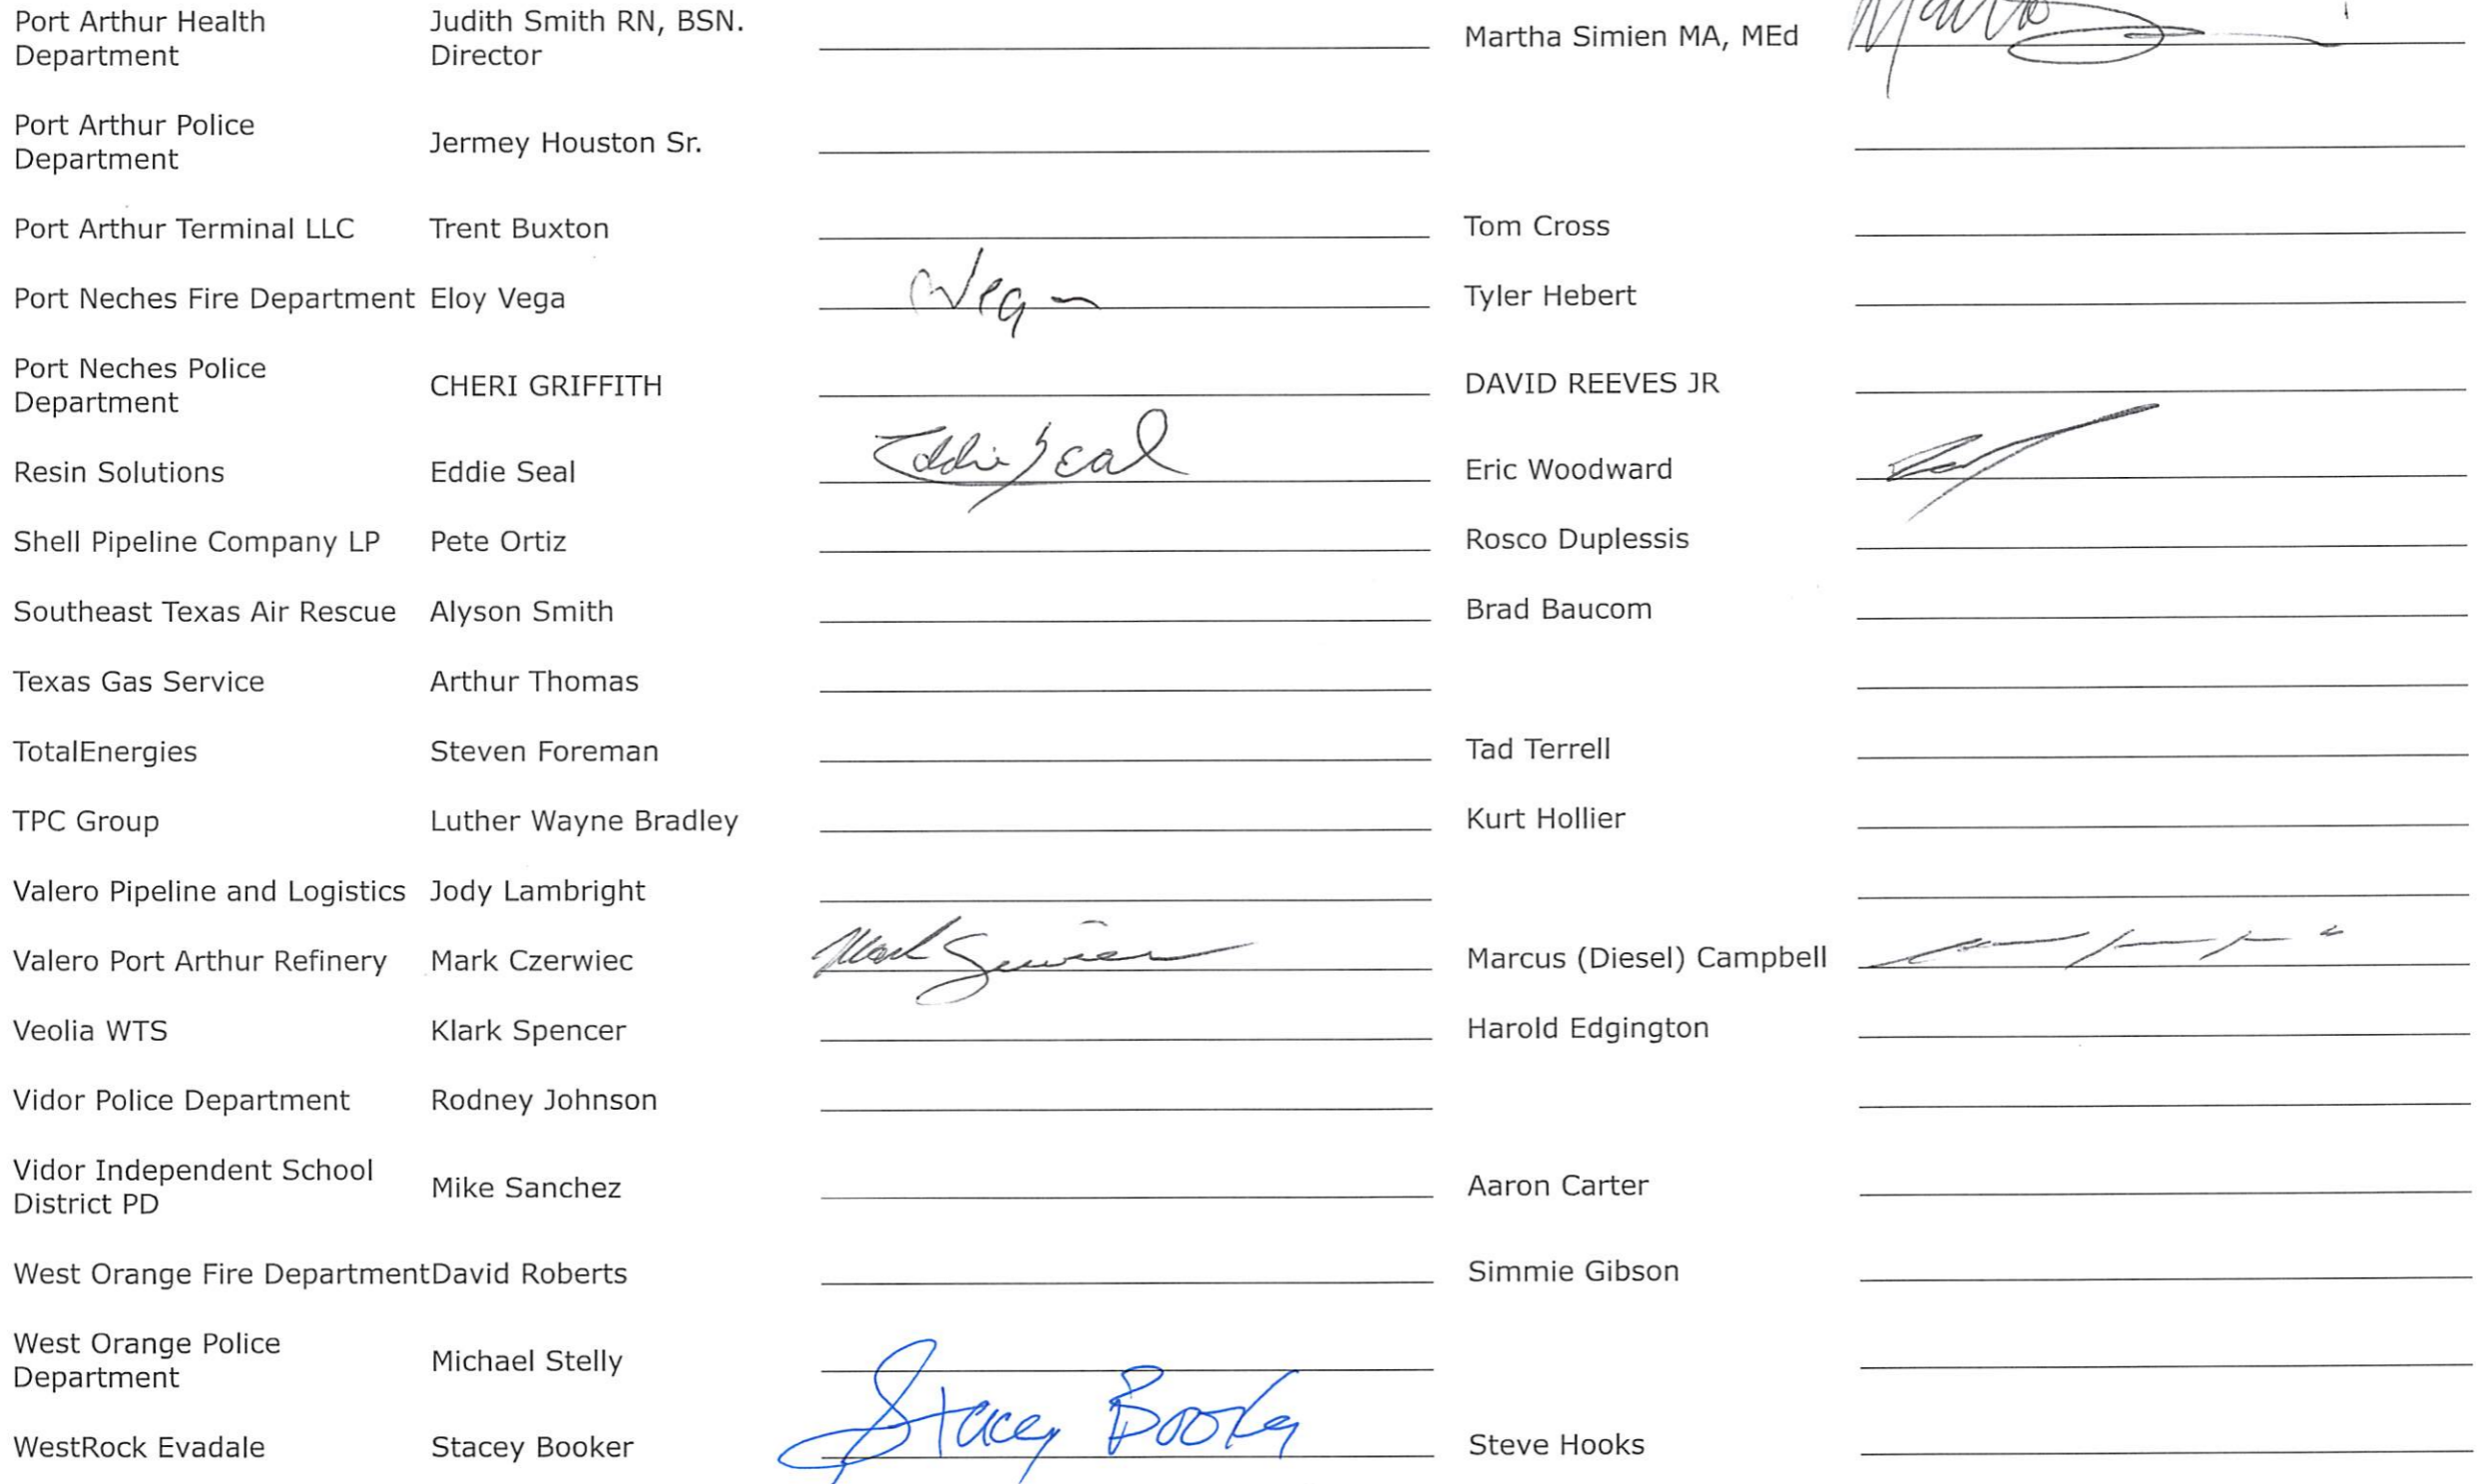 Port Arthur Health
Department
Judith Smith RN, BSN.
Director
Martha Simien MA, MEd
Martha
Port Arthur Police
Department
Jermey Houston Sr.
Port Arthur Terminal LLC Trent Buxton Tom Cross
Port Neches Fire Department Eloy Vega Vega Tyler Hebert
Port Neches Police
Department
CHERI GRIFFITH DAVID REEVES JR
Resin Solutions Eddie Seal Eddie Seal Eric Woodward
Shell Pipeline Company LP Pete Ortiz Rosco Duplessis
Southeast Texas Air Rescue Alyson Smith Brad Baucom
Texas Gas Service Arthur Thomas
TotalEnergies Steven Foreman Tad Terrell
TPC Group Luther Wayne Bradley Kurt Hollier
Valero Pipeline and Logistics Jody Lambright
Valero Port Arthur Refinery Mark Czerwiec Mark Marcus (Diesel) Campbell
Veolia WTS Klark Spencer Harold Edgington
Vidor Police Department Rodney Johnson
Vidor Independent School
District PD
Mike Sanchez Aaron Carter
West Orange Fire Department David Roberts Simmie Gibson
West Orange Police
Department
Michael Stelly
WestRock Evadale Stacey Booker Stacey Booker Steve Hooks